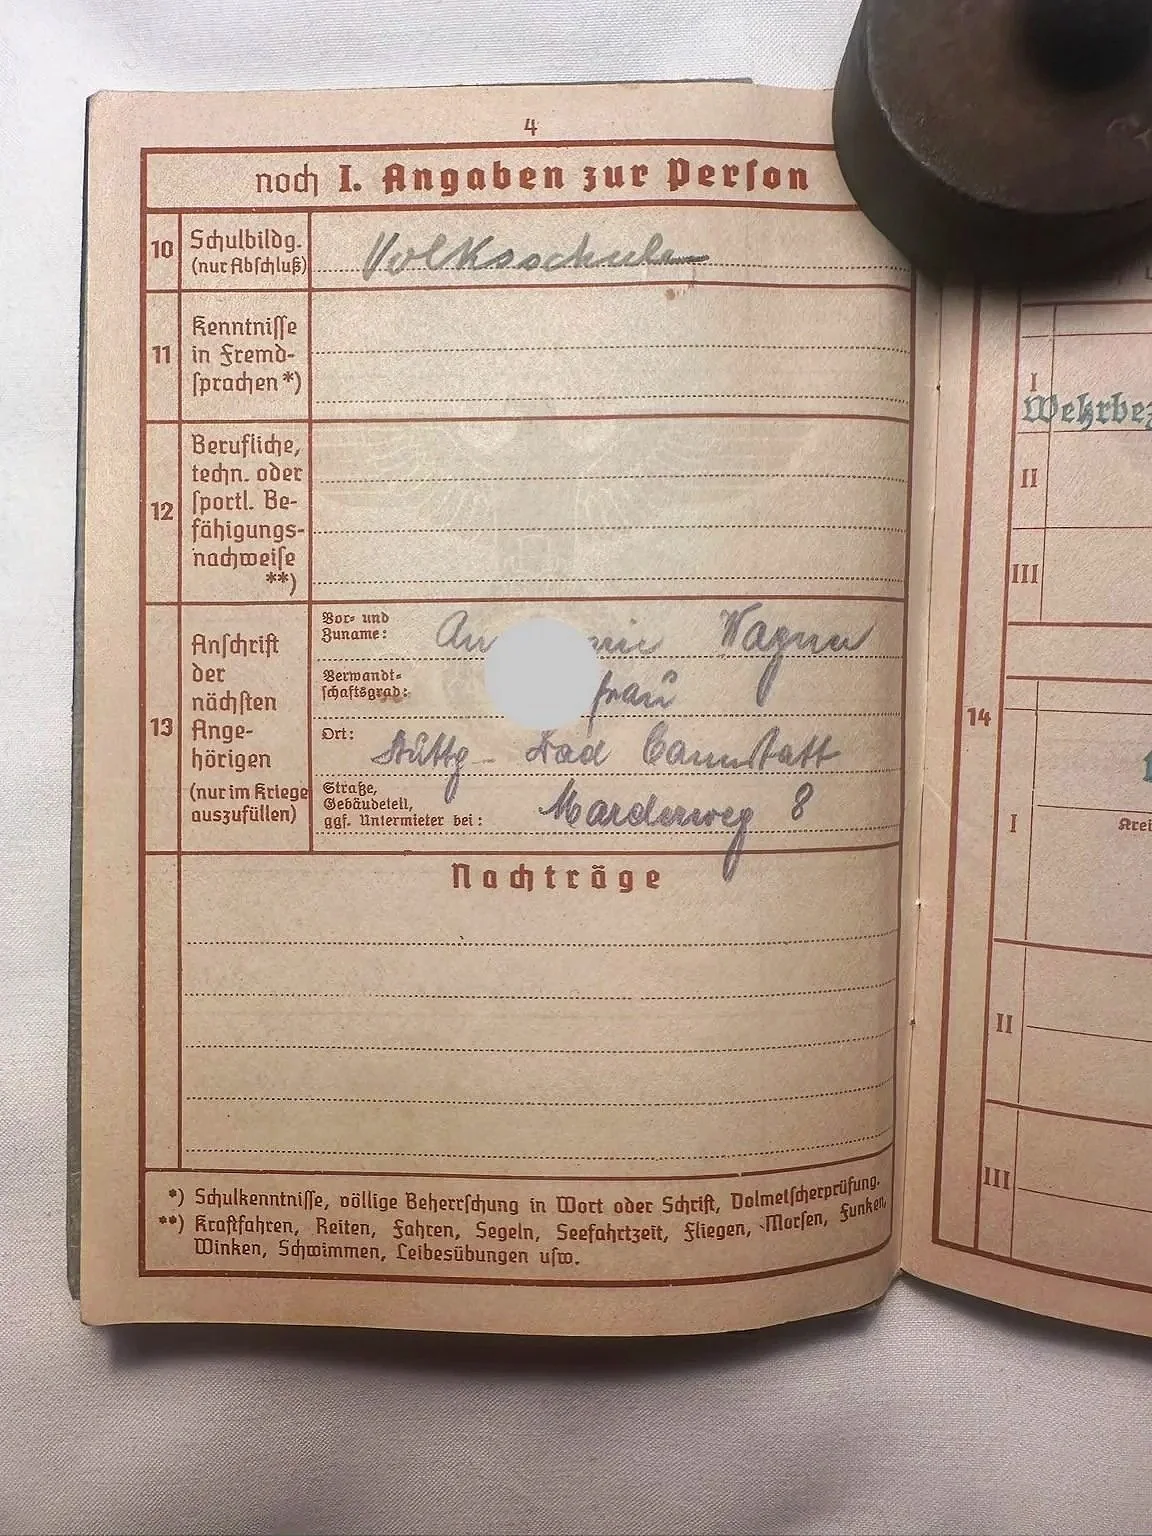 4
noch I. Angaben zur Person
10 Schulbildg. (nur Abschluß) Volksschule
11 Kenntnisse
in Fremd-
sprachen *)
12 Berufliche,
techn. oder
sportl. Be-
fähigungs-
nachweise
**)
13 Anschrift
der
nächsten
Ange-
hörigen
(nur im Kriege
auszufüllen)
Vor- und
Zuname: Wagner
Verwandt-
schaftsgrad: frau
Ort: Stuttg- Bad Cannstatt
Straße,
Gebäudeteil,
ggf. Untermieter bei: Marderweg 8
Nachträge
*) Schulkenntnisse, völlige Beherrschung in Wort oder Schrift, Dolmetscherprüfung.
**) Kraftfahren, Reiten, Fahren, Segeln, Seefahrtzeit, Fliegen, Morsen, Funken,
Winken, Schwimmen, Leibesübungen usw.
I
II
III
14
I
II
III